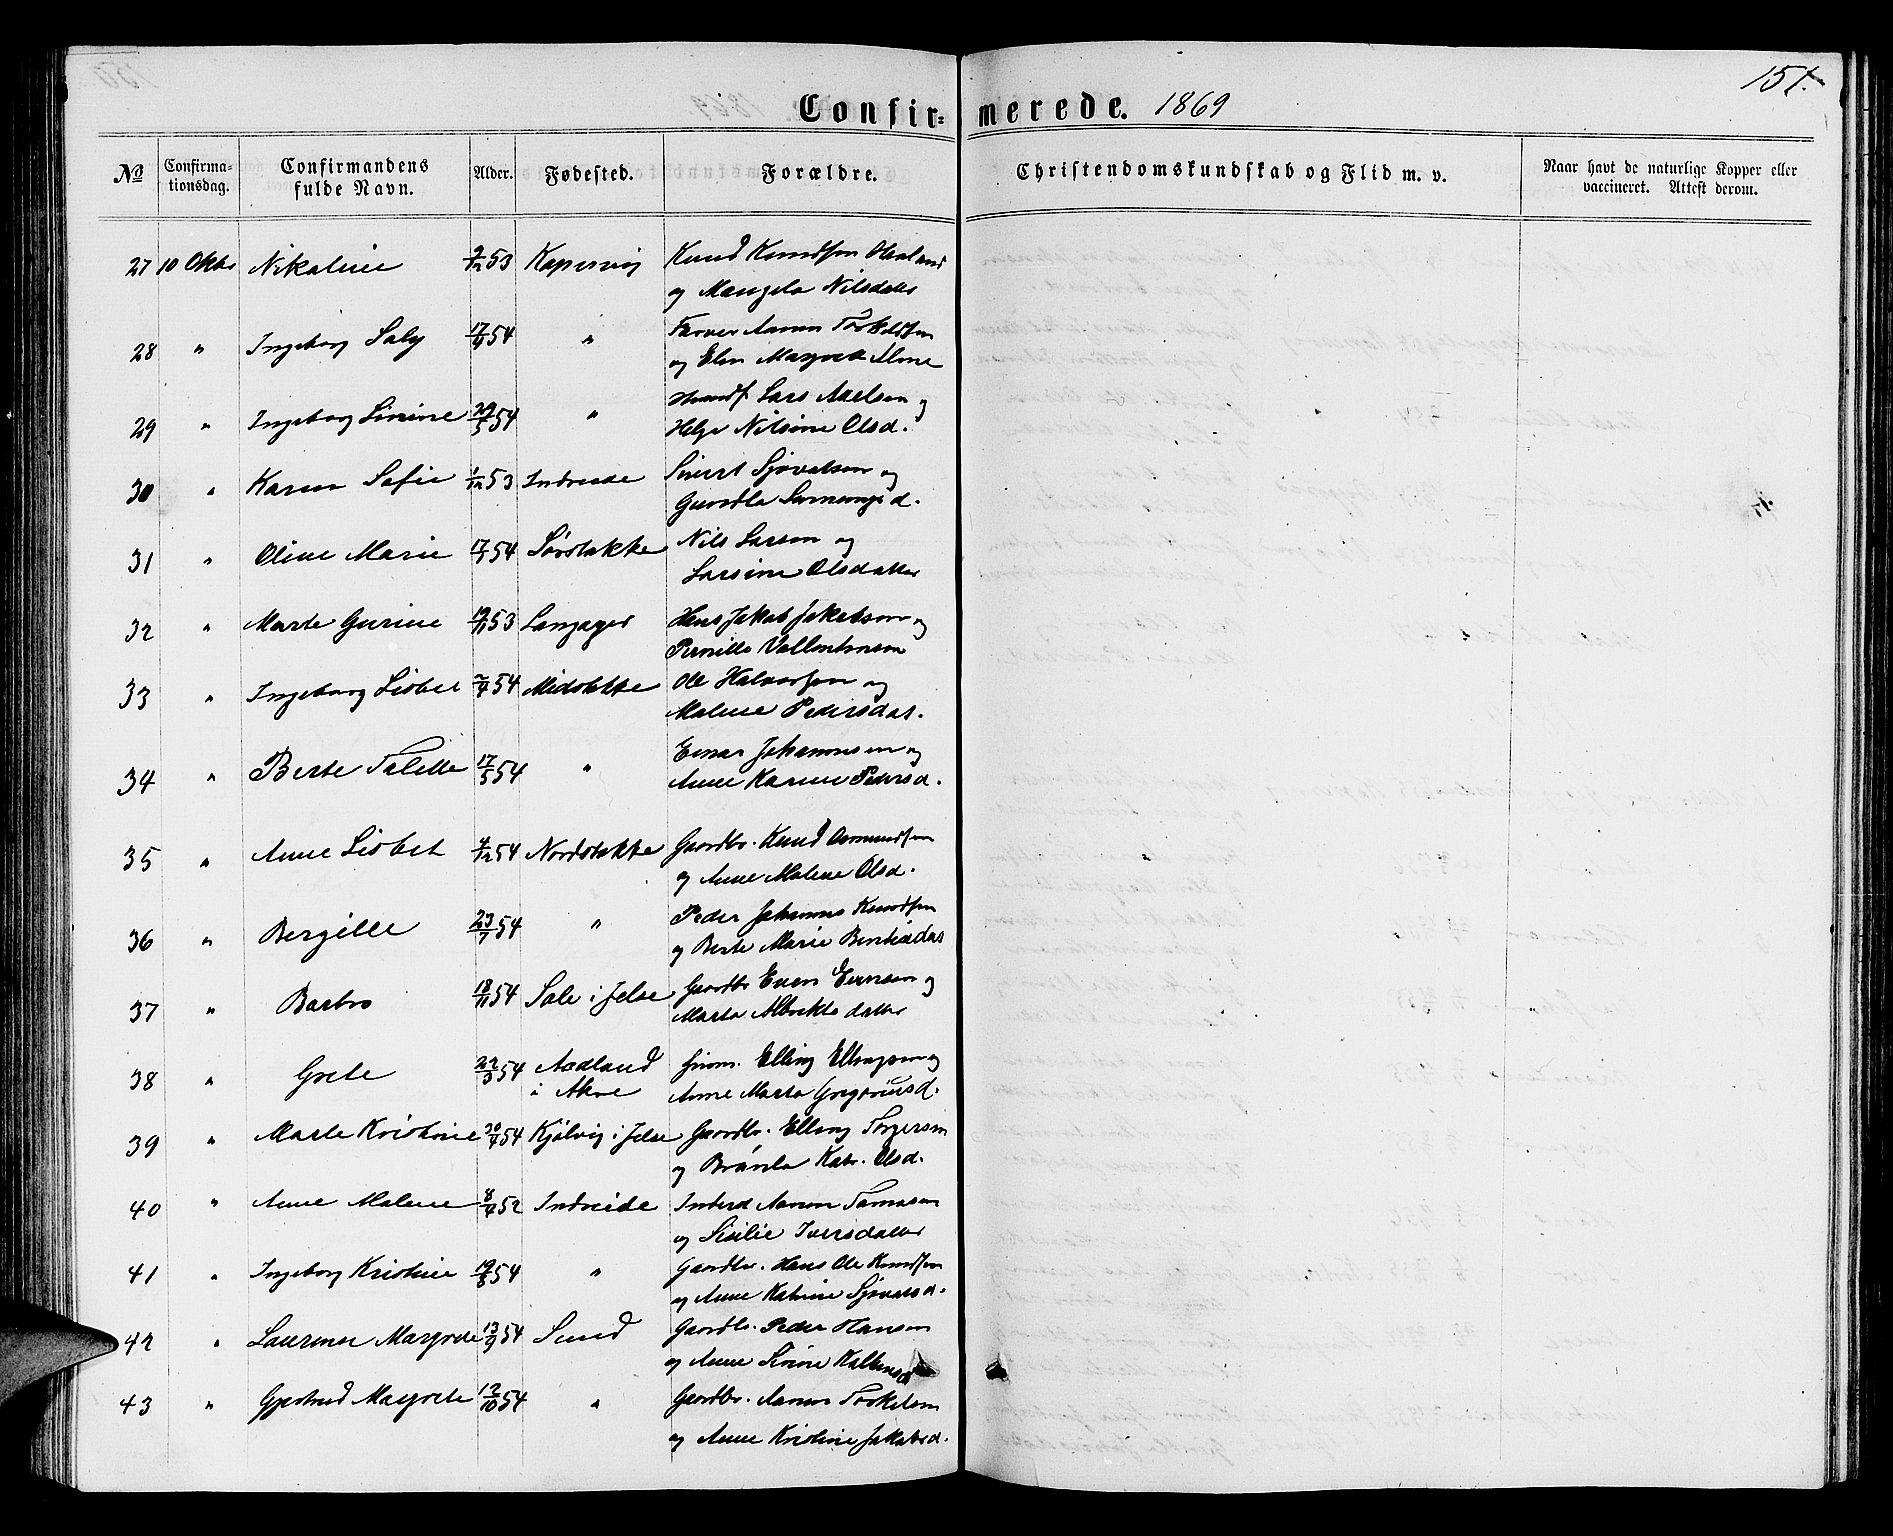 151.
Confirmerede. 1869
No Confirmationsdag. Confirmandens fulde Navn. Alder. Fødested. Forældre. Christendomskundskab og Flid m. v. Naar havt de naturlige Kopper eller vaccineret. Attest derom.
27 10 Oktb Nikoline 9/12 53 Kopervig Knud Knudsen Haaland
og Mangela Nilsdatter
28 " Ingeborg Saly 17/9 54 " Farver Aamun Torkildsen
og Elen Margrete Alene
29 " Ingeborg Sirine 29/5 54 " Handsf. Lars Axelsen og
Helge Nilsine Olsd.
30 " Karen Sofie 1/12 53 Indreide Sivert Sjovatsen og
Gurodla d.
31 " Oline Marie 17/1 54 Sørstokke Nils Larsen og
Larsine Olsdatter
32 " Marte Gurine 19/11 53 Langager Hans Jakob Jakobsen og
Pernille Vallentinsen
33 " Ingeborg Lisbet 2/4 54 Midstokke Ole Halvorsen og
Malene Pedersdat.
34 " Berte Talette 17/5 54 " Einar Johannesen og
Anne Karine Pedersd.
35 " Anne Lisbet 4/12 54 Nordstokke Gaardbr. Knud Osmundsen
og Anne Malene Olsd.
36 " Bergille 23/7 54 " Peder Johannes Knudsen
og Berte Marie
37 " Barbro 18/11 54 Sale i Jelse Gaardbr Even Evensen og
Marta Albrikts datter
38 " Grete 22/3 54 Aadland i Akre Elling Ellingsen og
Anne Marta Gregoriusd.
39 " Marte Kristine 30/4 54 Kjølvig i Jelse Gaardbr. Elling Torgersen
og Brønla Katr. Olsd.
40 " Anne Malene 8/4 52 Indreide Inderst Aamun Tamasen
og Sisilie Iversdatter
41 " Ingeborg Kristine 19/8 54 " Gaardbr. Hans Ole Knudsen
og Anne Katrine Sjovatsd.
42 " Laurense Margrete 13/9 54 Sund Gaardbr. Peder Hansen
og Anne Sirine
43 " Gjertrud Margrete 12/10 54 " Gaardbr. Aamun Torkelsen
og Anne Kristine Jakobsd.